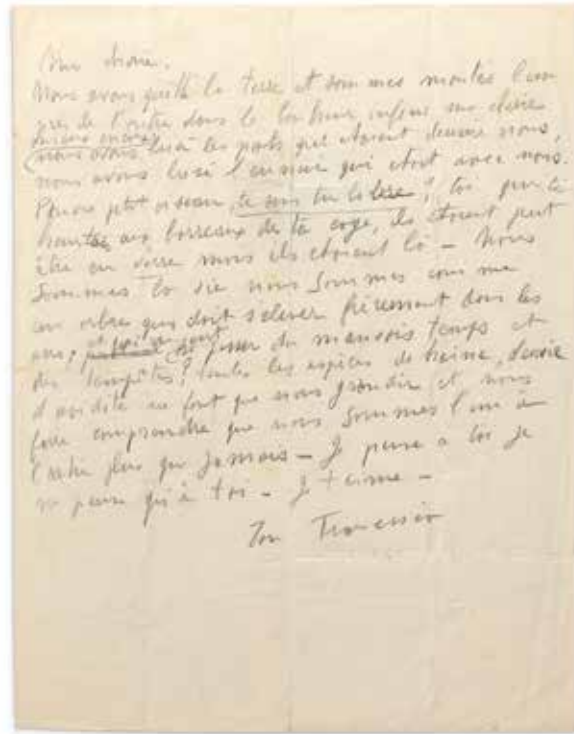 Ma chérie.
Nous avons quitté la terre et sommes montés l'un
près de l'autre dans le bonheur, ma chérie
nous avons brisé les ponts qui étaient derrière nous,
nous avons brisé l'ennui qui était avec nous.
Pauvre ptit oiseau, te sens tu libre? toi
aux barreaux de ta cage, ils étaient peut
être en verre mais ils étaient là - Nous
sommes la vie nous sommes comme
un arbre qui doit s'élever fièrement dans les
airs, du mauvais temps et
des tempêtes, toutes les espèces de haine, d'envie
d'avidité ne font que nous grandir et nous
faire comprendre que nous sommes l'un à
l'autre plus que jamais - Je pense à toi je
ne pense qu'à toi - Je t'aime -
Ton